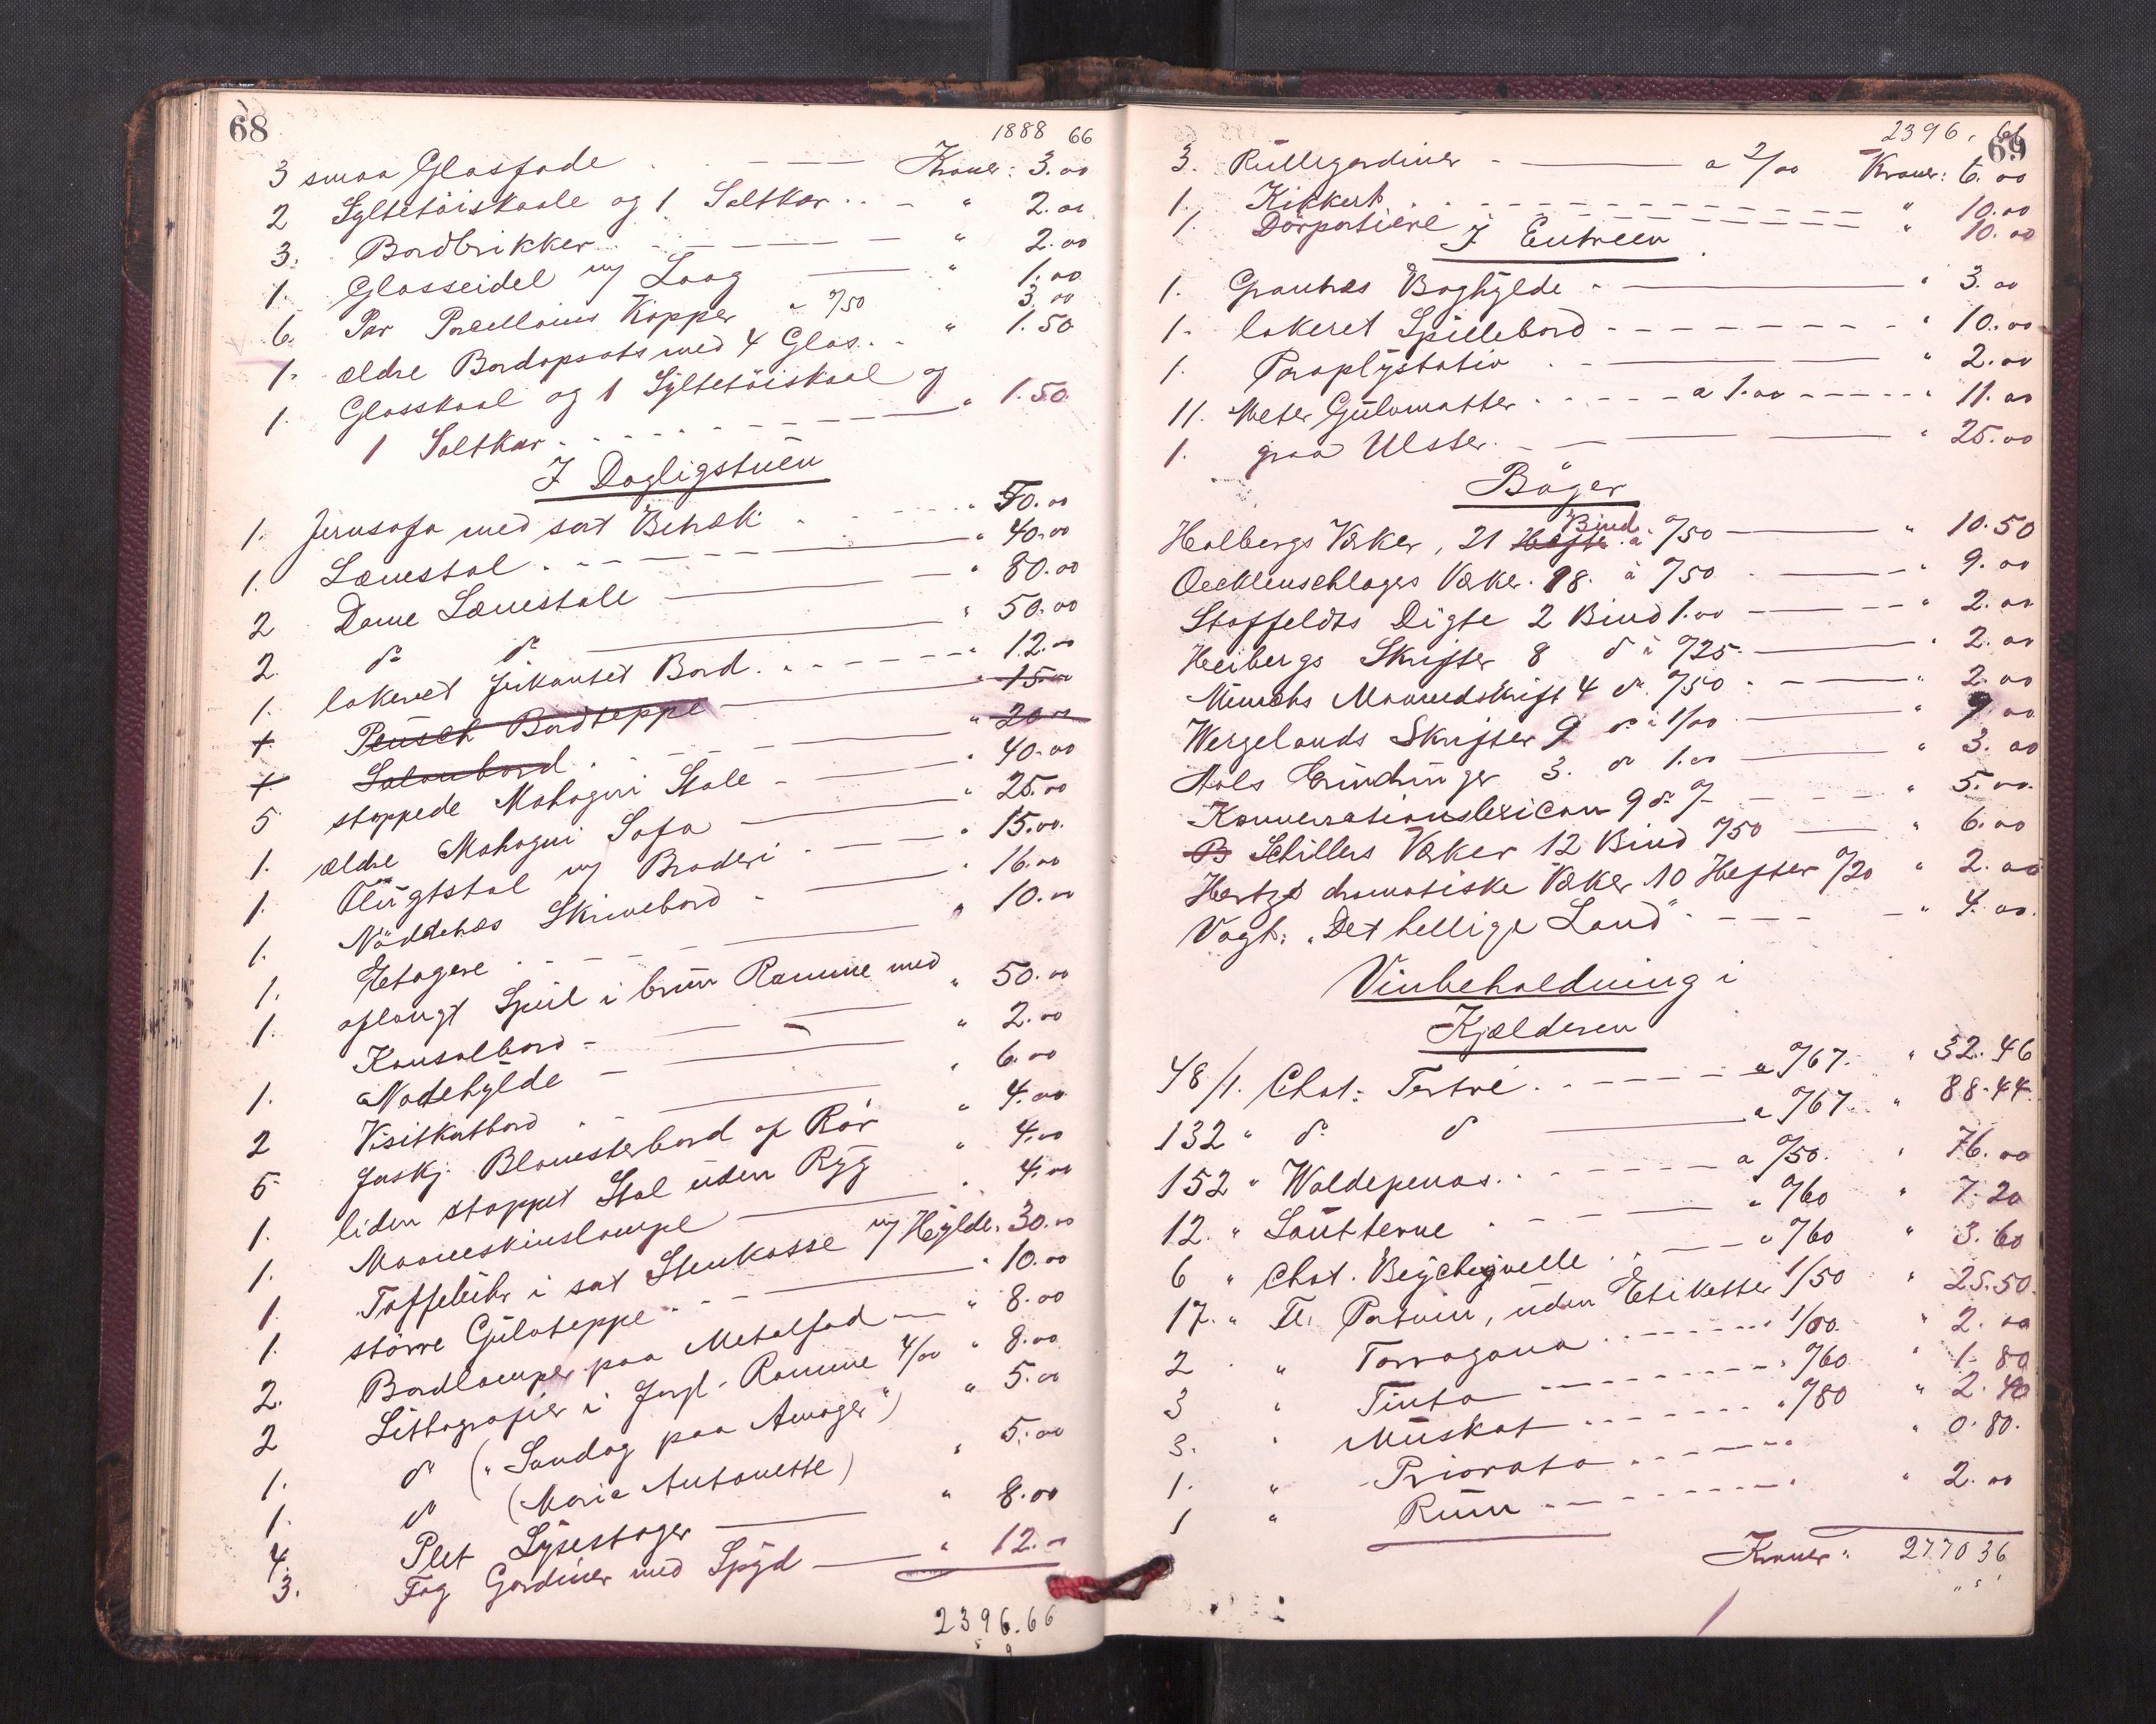 68
1888 66
3 smaa Glasfade - - - Kroner: 3.00
2 Syltetöiskaale og 1 Saltkar . . - " 2.00
3. Bordbrikker - - - - " 2.00
1. Glasseidel m/ Laag — " 1.00
6. Par Porcellains Kopper a 0/50 3.00
1. ældre Bordopsats med 4 Glas. - " 1.50
1. Glasskaal og 1 Syltetöiskaal og
1 Saltkar - - - - " 1.50
I Dagligstuen
1. Jernsofa med sort Betræk - - - " 50.00
1. Lænestol - - - - " 40.00
2 Dame Lænestole — " 80.00
2. do do — " 50.00
1. lakeret firkantet Bord - - - " 12.00
1 Plüsch Bordteppe — " 15.00
1 Salonbord - - - " 20.00
5 stoppede Mahogni Stole - — " 40.00
1. ældre Mahogni Sofa — " 25.00
1. Flugtstol m/ Broderi - - - " 15.00
1. Nöddetræs Skrivebord - — " 16.00
1. Etagere - - - — " 10.00
1. aflangt Speil i brun Ramme med
Konsolbord - — " 50.00
1. Nodehylde - — " 2.00
2 Visitkortbord - — " 6.00
5 forskj. Blomsterbord af Rör " 4.00
1. liden stoppet Stol uden Ryg " 4.00
1. Maaneskinslampe — " 4.00
1. Taffeluhr i sort Stenkasse m/ Hylde " 30.00
1. större Gulvteppe - - — " 10.00
2. Bordlamper paa Metalfod — " 8.00
2 Lithografier i forgl. Ramme 4/00 " 8.00
1. do ("Söndag paa Amager") " 5.00
1. do (Marie Antonette) " 5.00
4. Plet Lysestager — " 8.00
3. Fag Gardiner med Spyd — " 12.00
2396.66
69
2396. 66
3. Rullegardiner - — a 2/00 Kroner: 6.00
1. Kikkert - - - - " 10.00
1. Dörportiere - - - " 10.00
I Entreen
1. Grantræs Boghylde - — " 3.00
1. lakeret Spillebord - - - - " 10.00
1. Paraplystativ - — " 2.00
11. Meter Gulvmatter - - - a 1.00 - - - " 11.00
1. graa Ulster - — " 25.00
Böger
Holbergs Værker, 21 Hefte Bind a 0/50 — " 10.50
Oechlenschlagers Værker. 18. à 0/50 - — " 9.00
Staffeldts Digte 2 Bind 1.00 — " 2.00
Heibergs Skrifter 8 do à 0/25 — " 2.00
Munchs Maanedskrift 4 do 0/50 - — " 2.00
Wergelands Skrifter 9 do à 1/00 — " 9.00
Aals Erindringer 3. do 1.00 — " 3.00
Konversationslexicon 9 do - - - " 5.00
B Schillers Værker 12 Bind 0/50 — " 6.00
Hertz's dramatiske Værker 10 Hefter 0/20 " 2.00
Vogt: "Det hellige Land" - - - " 4.00
Vinbeholdning i
Kjælderen
48/1. Chat: Tertre - - - a 0/67 " 32.46
132 " do do — a 0/67 " 88.44
152 " Waldepenas - - - a 0/50 " 76.00
12. " Sautterne - - - a 0/60 " 7.20
6 " Chat. Beychevelle - - " 0/60 " 3.60
17. " Fl. Portvin, uden Etiketter 1/50 " 25.50
2 " Tarragona - - - " 1/00 " 2.00
3 " Tinto - - - " 0/60 " 1.80
3. " Muskat - - - " 0/80 " 2.40
1. " Priorato - - - " 0.80
1 " Rum - - - " 2.00
Kroner: 2770 36